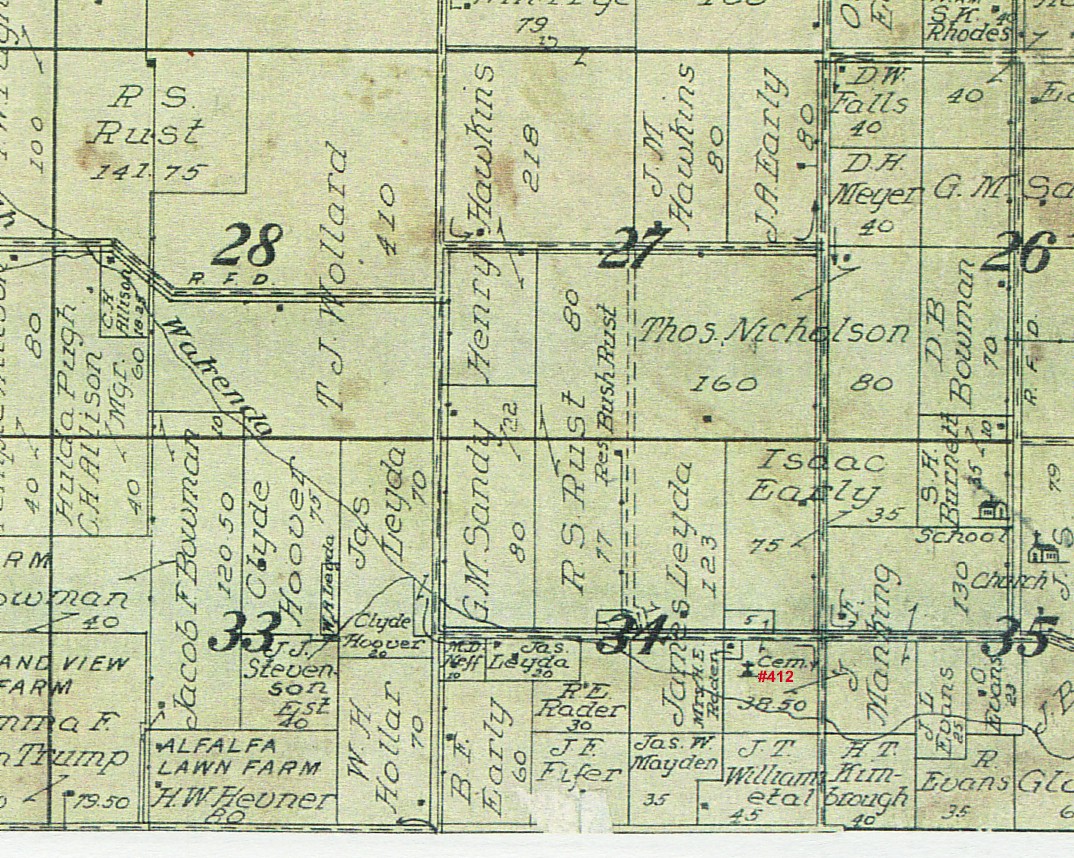 79
R S.
Rust
141.75
100
28
R. F. D.
T J. Wollard
410
Henry Hawkins
218
J. M
Hawkins
80
J. A. Early
80
27
S. K.
Rhodes
D. W.
Falls
40
40
D. H.
Meyer
40
G. M. Sa
26
Thos. Nicholson
160
80
D. B
Bowman
70
R. F. D.
80
Hulda Pugh
C. H. Allison
Mgr.
60
40
40
C. H.
Allison
18.25
Wakenda
10
Jacob F Bowman
120.50
Clyde
Hoover
75
Jas
Leyda
70
G. M Sandy
122
80
80
R S Rust
77
Res Bush Rust
James Leyda
123
Isaac
Early
35
75
S. H.
Burnett
35
10
School
79
Church
J. S
130
J. F.
Manning
RM
owman
40
33
W A Leyda
Clyde
Hoover
20
J J.
Steven-
son
Est
40
M. D.
Neff
10
Jas.
Leyda
20
34
51
Cem.
#412
38.50
Mrs H. E.
Raden
35
AND VIEW
FARM
mma F.
n Trump
79.50
ALFALFA
LAWN FARM
H. W. Hevner
80
W. H
Hollar
70
B F.
Early
60
R. E
Rader
30
J. F.
Fifer
Jas. W.
Mayden
35
J. T.
William
etal
45
H. T.
Kim-
brough
40
J L
Evans
25
O
Evans
23
R.
Evans
35
J. B
Glo